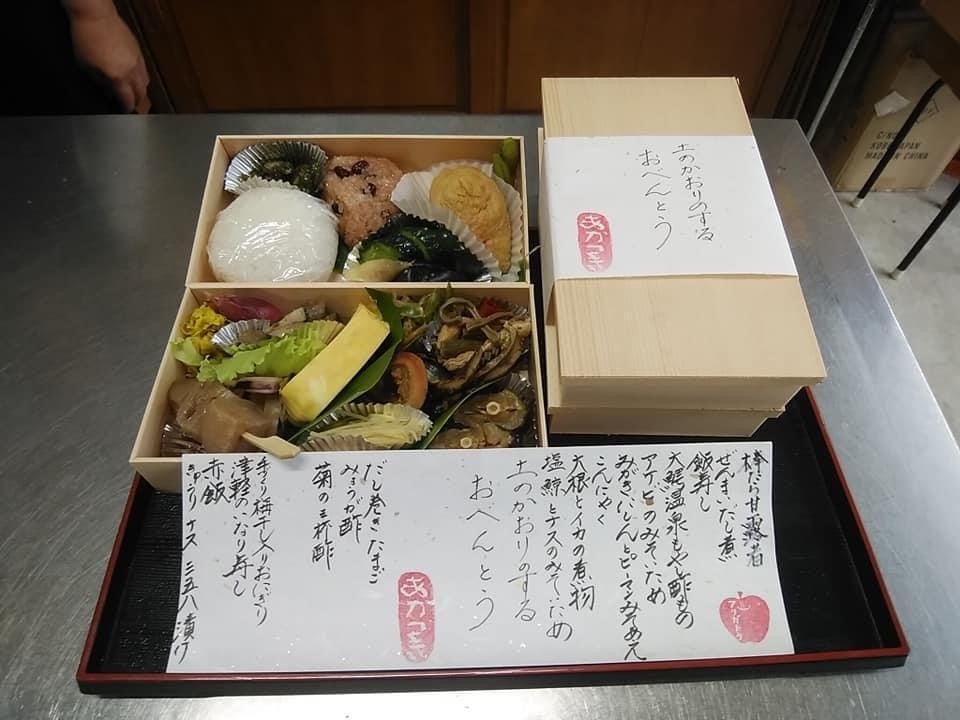 土のかおりのする
おべんとう
あかつき
C/NO.
KOBE JAPAN
MADE IN CHINA
棒だら甘露煮
ぜんまいだし煮
飯寿し
大鰐温泉もやし酢もの
アケビのみそいため
みがきにしんとピーマンみそあえ
こんにゃく
大根とイカの煮物
塩鯨とナスのみそいため
土のかおりのする
おべんとう
あかつき
だし巻きたまご
みょうが酢
菊の三杯酢
手づくり梅干し入りおにぎり
津軽のいなり寿し
赤飯
きゅうり ナス 三五八漬け